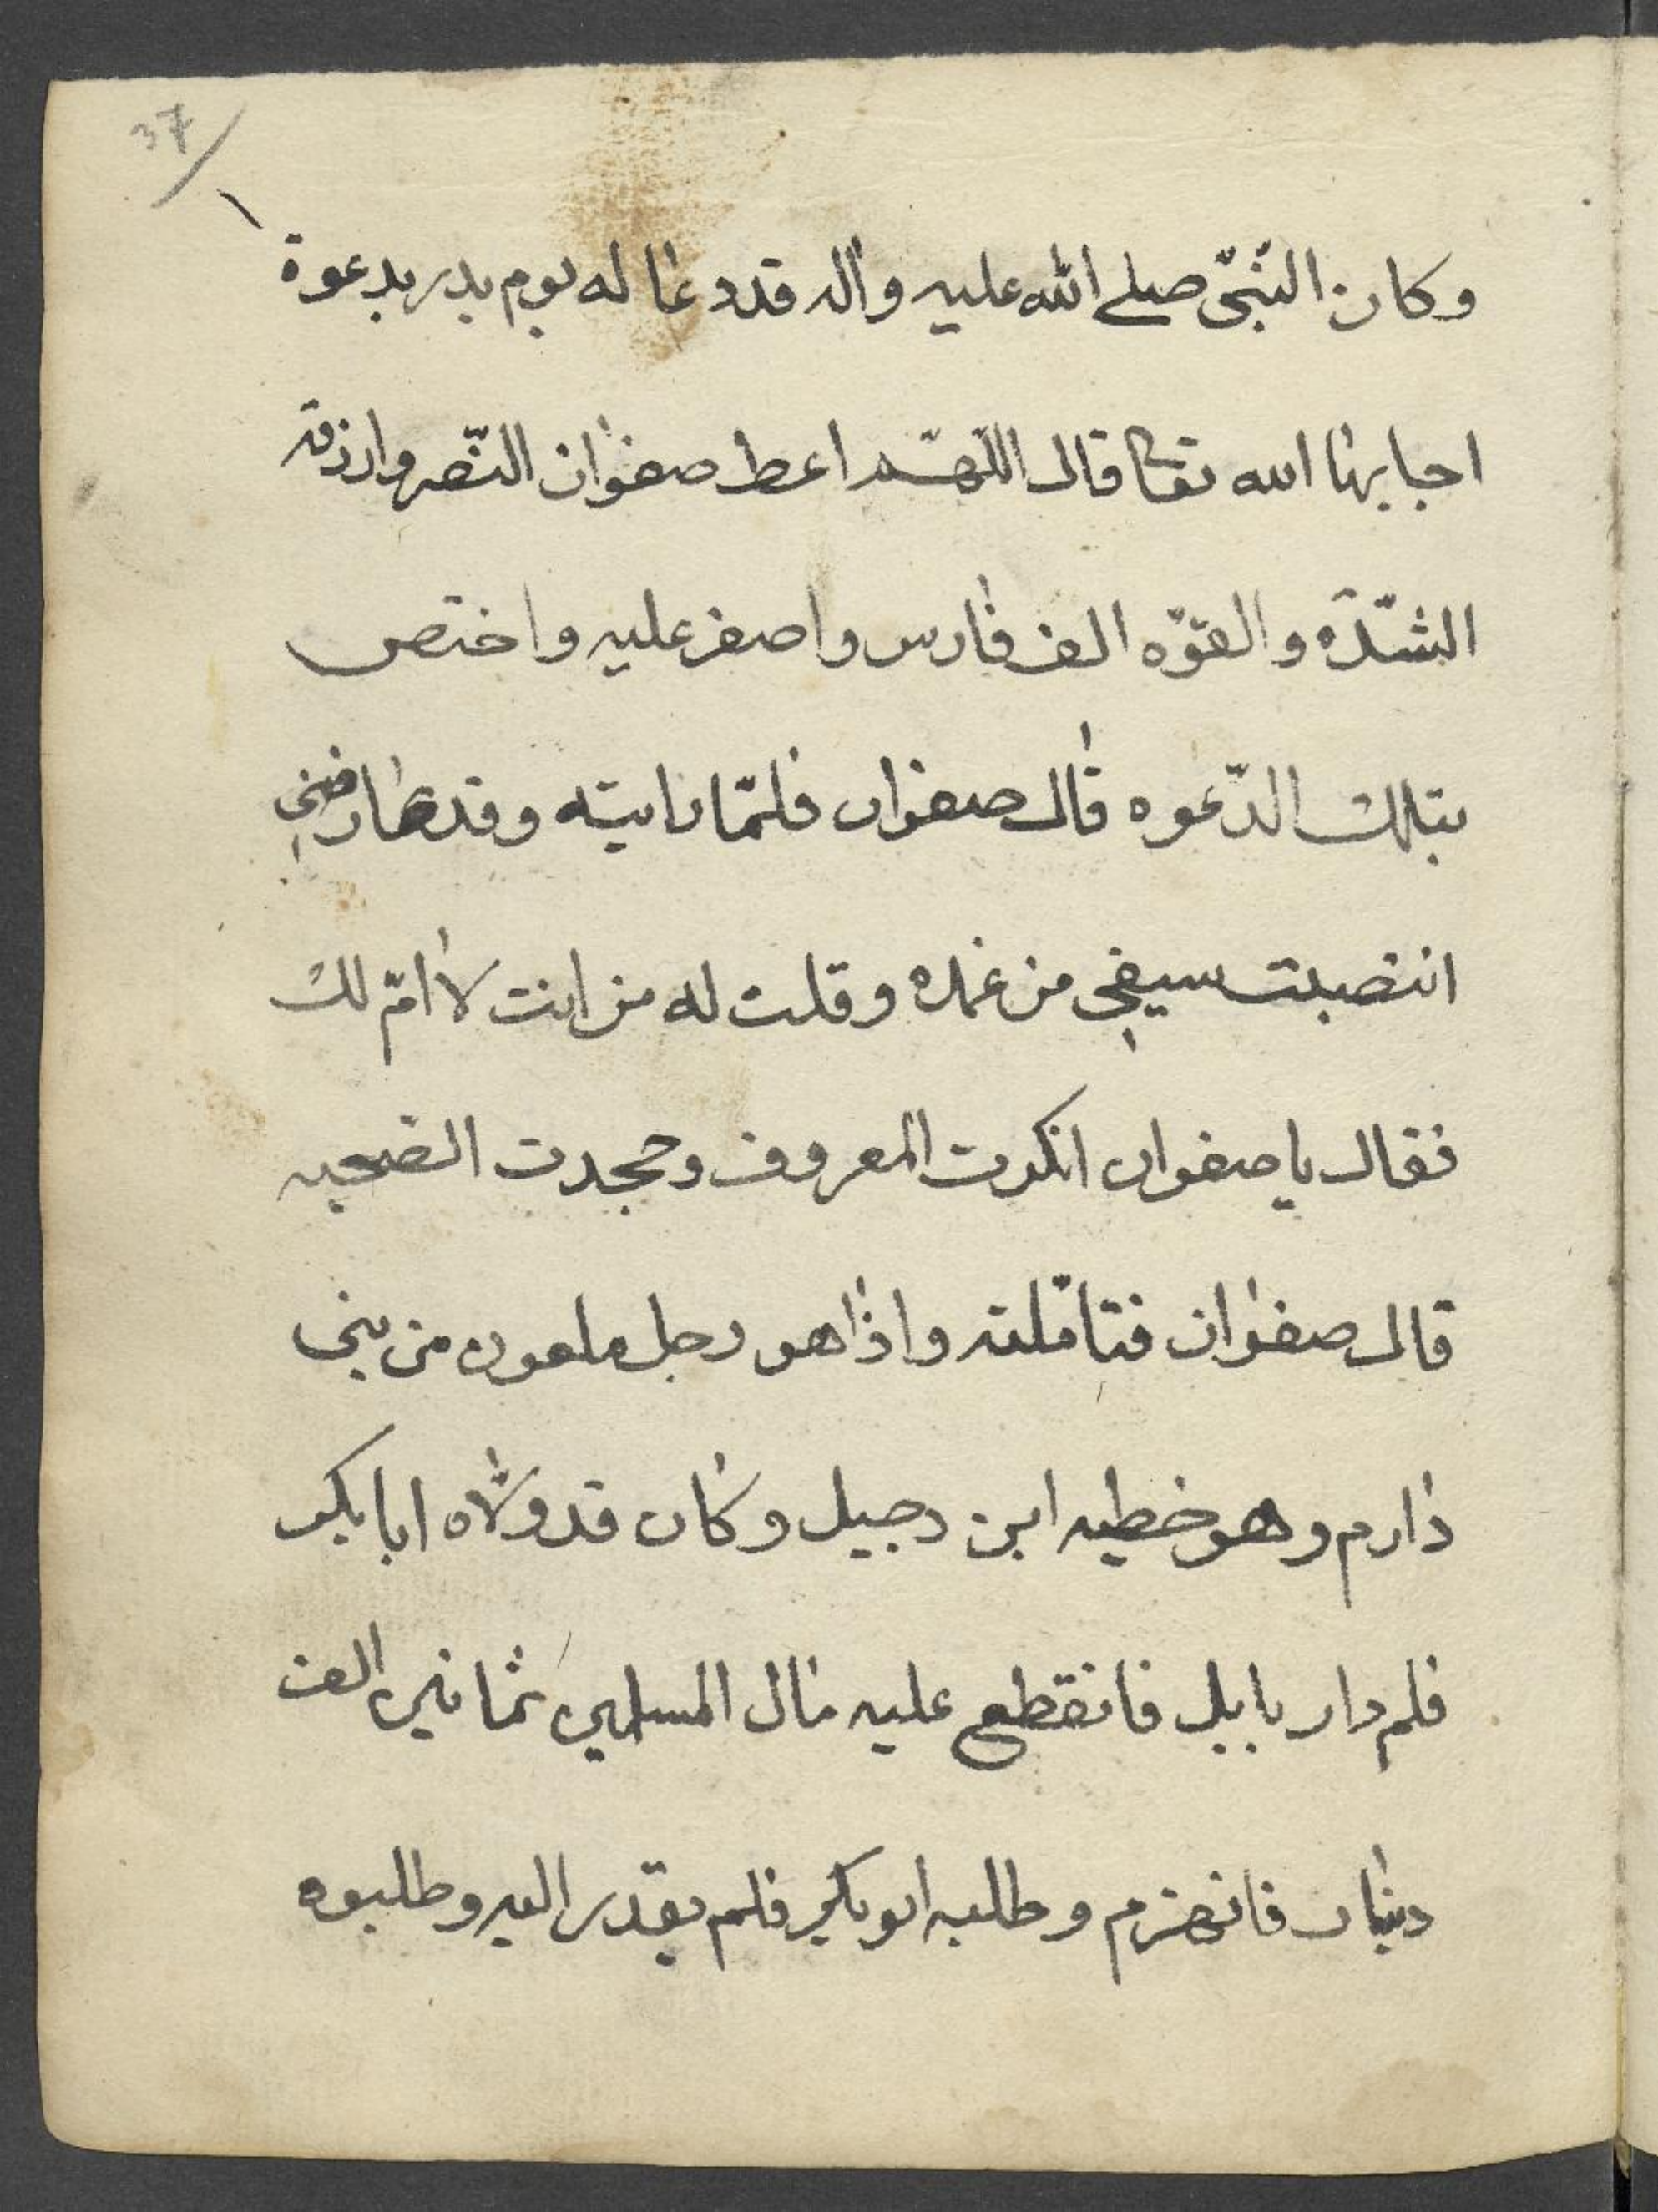 37
وكان النّبيّ صلى الله عليه واله قد دعا له يوم بدر بدعوة
اجابها الله تعا قال اللهمّ اعط صفوان النّصر وارزقه
الشدّة والقوّه الف فارس واصفر عليه واختص
بتلك الدّعوه قال صفوان فلمّا رايته وقد عارضني
انتضبت سيفي من غمده وقلت له من انت لا امّ لك
فقال يا صفوان انكرت المعروف وجحدت الصحبه
قال صفوان فتامّلته واذا هو رجل ملعون من بني
دارم وهو خطيه ابن دجيل وكان قد ولّاه ابا بكر
فلم دار بابل فانقطع عليه مال المسلمين ثمانين الف
دينار فانهزم وطلبه ابو بكر فلم يقدر اليه وطلبوه